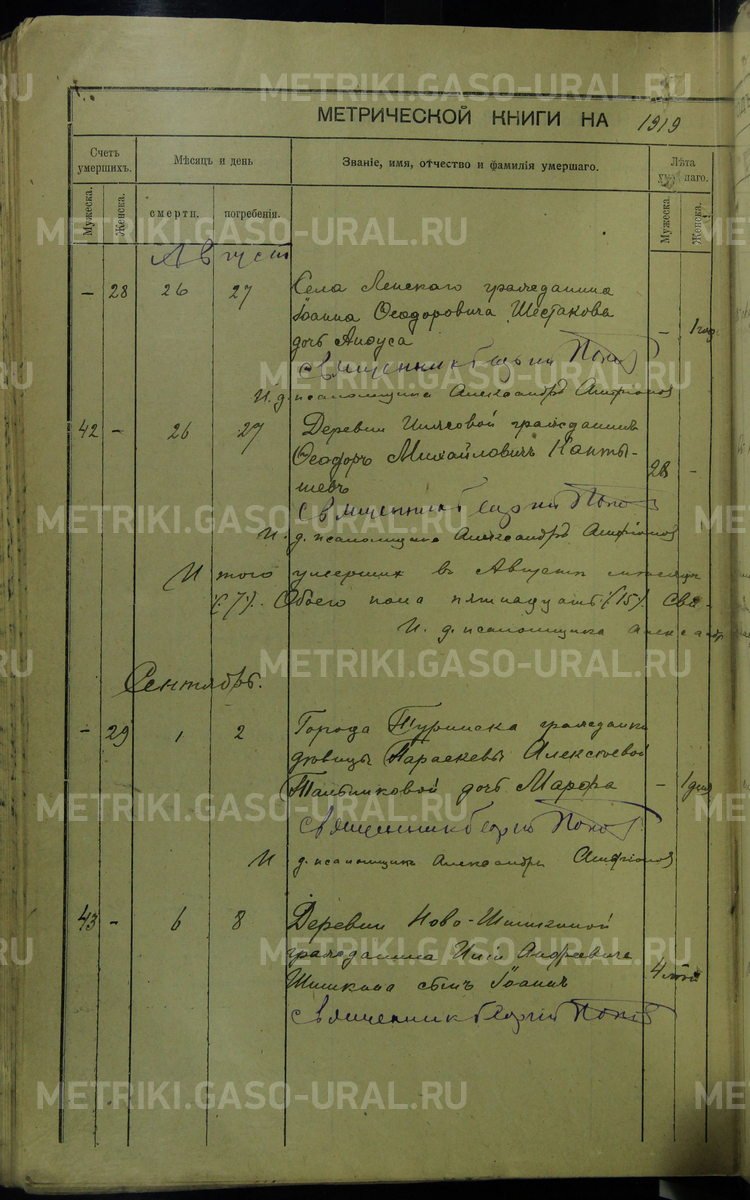 МЕТРИЧЕСКОЙ КНИГИ НА 1919
Счетъ умершихъ.
Мѣсяцъ и день
Званіе, имя, отчество и фамилія умершаго.
Лѣта умершаго.
Мужеска.
Женска.
смерти.
погребенія.
Мужеска.
Женска.
Августъ
— 28 26 27 Села Ленскаго гражданина
Іоанна Ѳеодоровича Шестакова
дочь — 1 год.
Священникъ Георгій Попов
И. д. псаломщика Александръ
42 — 26 27 Деревни гражданинъ
Ѳеодоръ Михайловичъ Канты-
шевъ 28 —
Священникъ Георгій Попов
И. д. псаломщика Александръ
Итого умершихъ въ Августѣ мѣсяцѣ
(7). Обоего пола пятнадцать (15) Свя-
И. д. псаломщика Александръ
Сентябрь.
— 29 1 2 Города Туринска гражданки
дѣвицы Параскевы Алексѣевой
дочь — 1 дня
Священникъ Георгій Попов
И. д. псаломщика Александръ
43 — 6 8 Деревни Ново-Шишкиной
гражданина Андреевича
Шишкина сынъ Іоаннъ 4
Священникъ Георгій Попов
METRIKI.GASO-URAL.RU